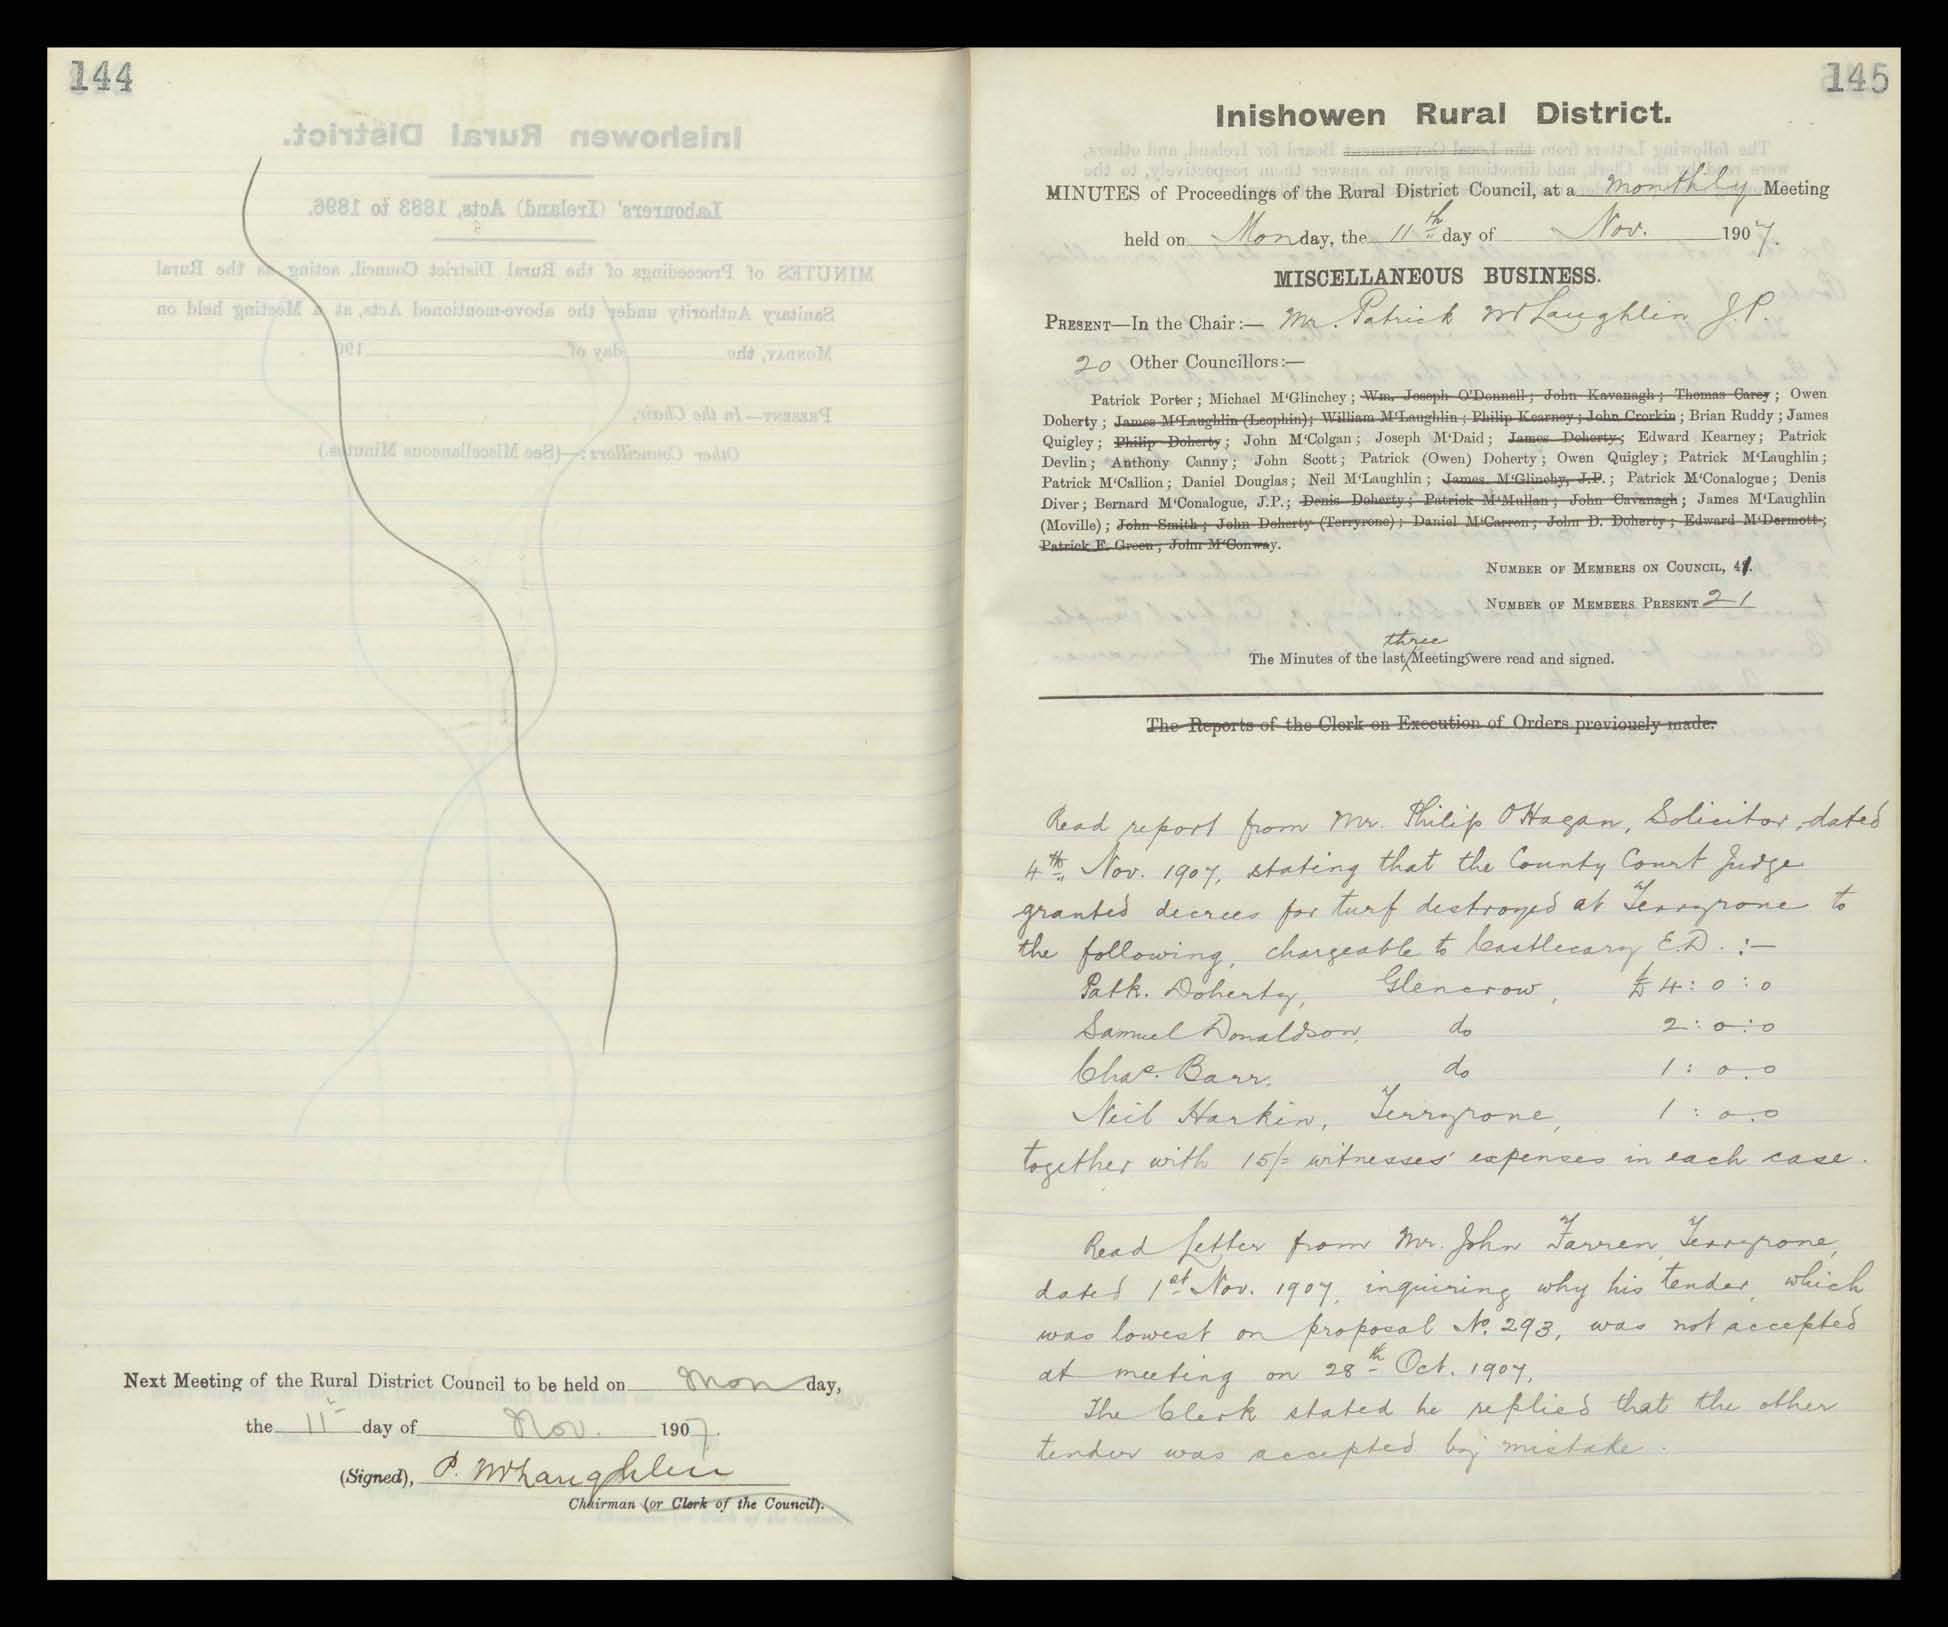 144
Next Meeting of the Rural District Council to be held on Monday,
the 11th day of Nov. 1907.
(Signed), P. McLaughlin
Chairman (or Clerk of the Council).
145
Inishowen Rural District.
MINUTES of Proceedings of the Rural District Council, at a monthly Meeting
held on Monday, the 11th day of Nov. 1907.
MISCELLANEOUS BUSINESS.
PRESENT—In the Chair:— Mr. Patrick McLaughlin J.P.
20 Other Councillors:—
Patrick Porter; Michael M'Glinchey; Wm. Joseph O'Donnell; John Kavanagh; Thomas Carey; Owen
Doherty; James M'Laughlin (Leophin); William M'Laughlin; Philip Kearney; John Crorkin; Brian Ruddy; James
Quigley; Philip Doherty; John M'Colgan; Joseph M'Daid; James Doherty; Edward Kearney; Patrick
Devlin; Anthony Canny; John Scott; Patrick (Owen) Doherty; Owen Quigley; Patrick M'Laughlin;
Patrick M'Callion; Daniel Douglas; Neil M'Laughlin; James M'Glinchy, J.P.; Patrick M'Conalogue; Denis
Diver; Bernard M'Conalogue, J.P.; Denis Doherty; Patrick M'Mullan; John Cavanagh; James M'Laughlin
(Moville); John Smith; John Doherty (Terryrone); Daniel M'Carron; John D. Doherty; Edward M'Dermott;
Patrick F. Green; John M'Conway.
NUMBER OF MEMBERS ON COUNCIL, 41.
NUMBER OF MEMBERS PRESENT 21
three
The Minutes of the last Meetings were read and signed.
The Reports of the Clerk on Execution of Orders previously made.
Read report from Mr. Philip O'Hagan, Solicitor, dated
4th Nov. 1907, stating that the County Court Judge
granted decrees for turf destroyed at Terryrone to
the following, chargeable to Castlecary E.D. :—
Patk. Doherty, Glencrow, £4:0:0
Samuel Donaldson, do 2:0:0
Chas. Barr, do 1:0:0
Neil Harkin, Terryrone, 1:0:0
together with 15/= witnesses' expenses in each case.
Read Letter from Mr. John Farren, Terryrone,
dated 1st Nov. 1907, inquiring why his tender, which
was lowest on proposal No. 293, was not accepted
at meeting on 28th Oct. 1907.
The Clerk stated he replied that the other
tender was accepted by mistake.